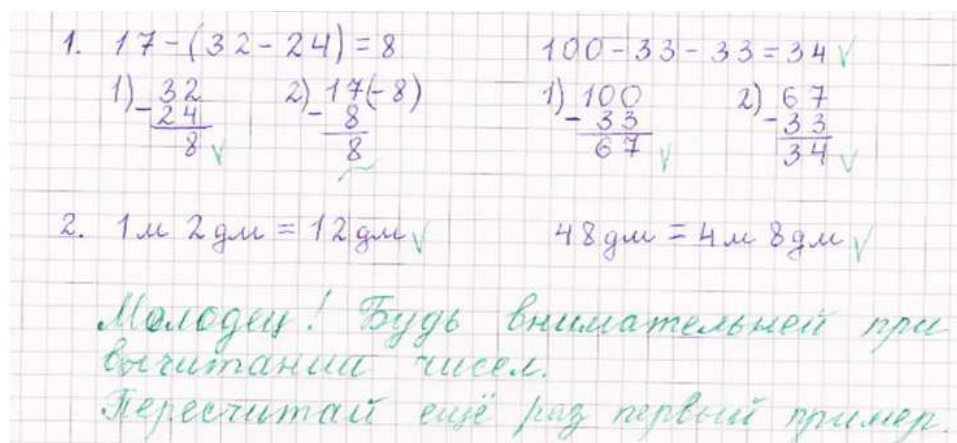 1. 17-(32-24)=8 100-33-33=34 ✓
1) 32 2) 17(-8) 1) 100 2) 67
- 24 - 8 - 33 - 33
8 ✓ 8 67 ✓ 34 ✓
2. 1 м 2 дм = 12 дм ✓ 48 дм = 4 м 8 дм ✓
Молодец! Будь внимательней при
вычитании чисел.
Пересчитай ещё раз первый пример.